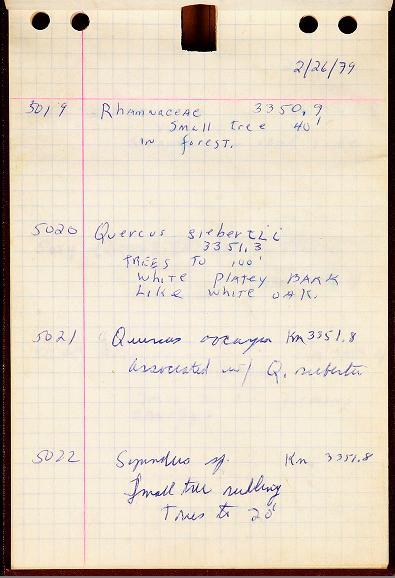 2/26/79
5019 Rhamnaceae 3350.9
Small tree 40'
in forest.
5020 Quercus siebertii
3351.3
TREES TO 100'
WHITE PLATEY BARK
LIKE WHITE OAK.
5021 Quercus Km 3351.8
associated w/ Q. sieberti
5022 Sapindus sp. Km 3351.8
Small tree
Trees to 20'